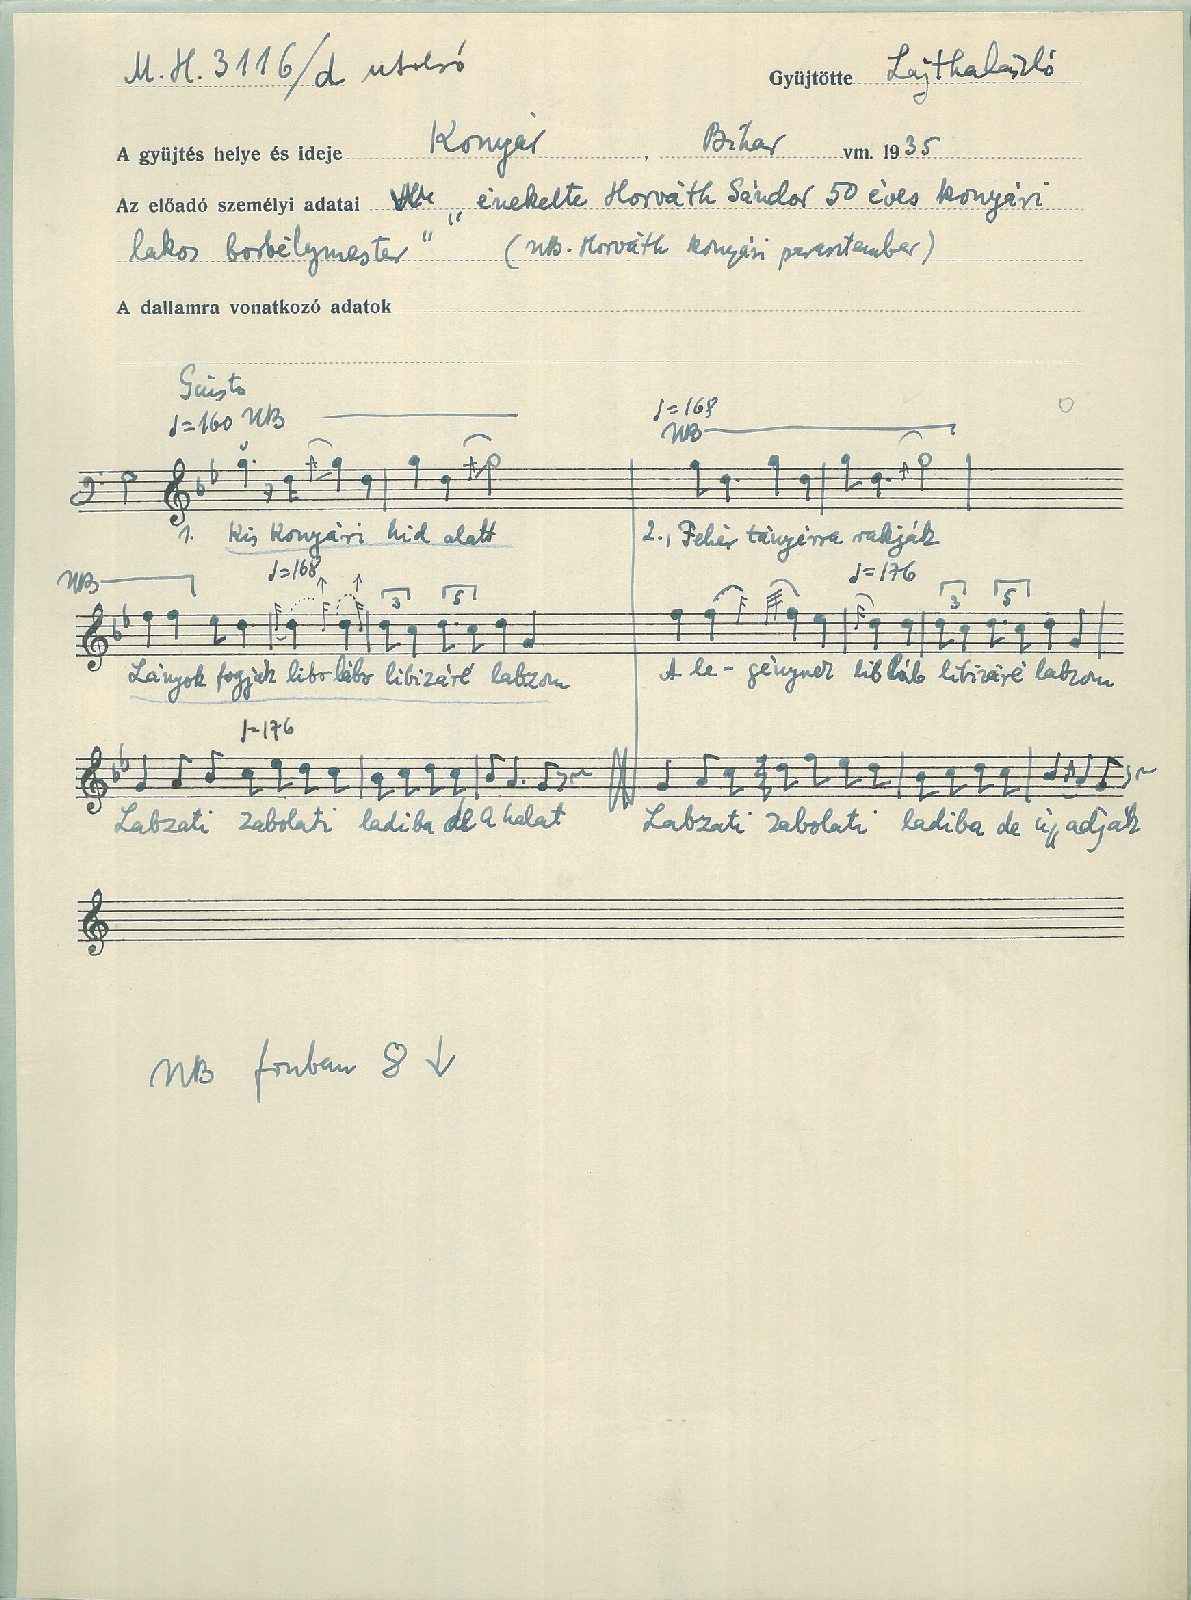 M. H. 3116/d utolsó
Gyüjtötte Lajtha László
A gyüjtés helye és ideje Konyár, Bihar vm. 1935
Az előadó személyi adatai „énekelte Horváth Sándor 50 éves konyári
lakos borbélymester" (NB. Horváth konyári parasztember)
A dallamra vonatkozó adatok
Giusto
♩=160 NB
♩=168
NB
1. Kis Konyári hid alatt
2., Fehér tányérra rakják
NB
♩=168
♩=176
3 5 3 5
Lányok fogják libs lábs libizáré labzom
A legénynek lib láb libizáré labzom
♩=176
Labzati zabolati ladiba de A halat
Labzati zabolati ladiba de úgy adják
NB fonban 8 ↓